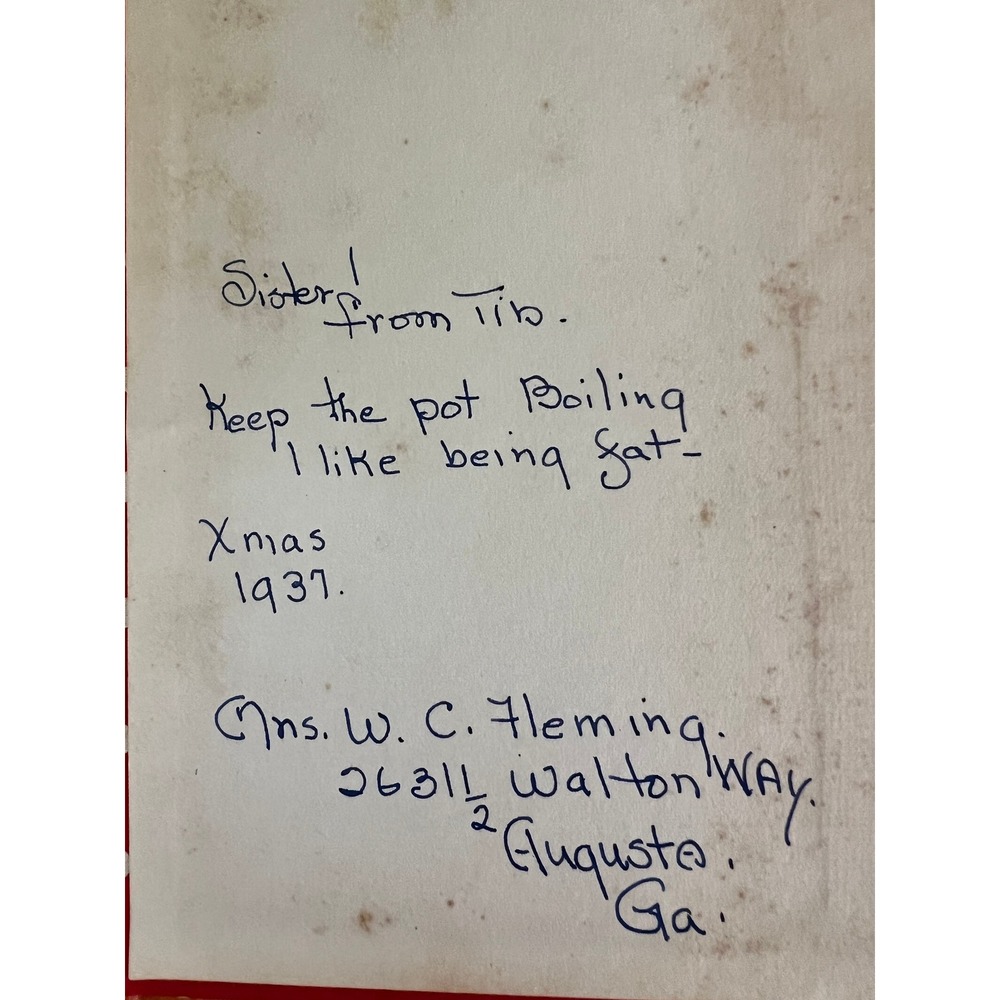 Sister!
from Tib.
Keep the pot Boiling
I like being fat-
Xmas
1937.
Mrs. W. C. Fleming.
2631 1/2 Walton WAy.
Augusta.
Ga.